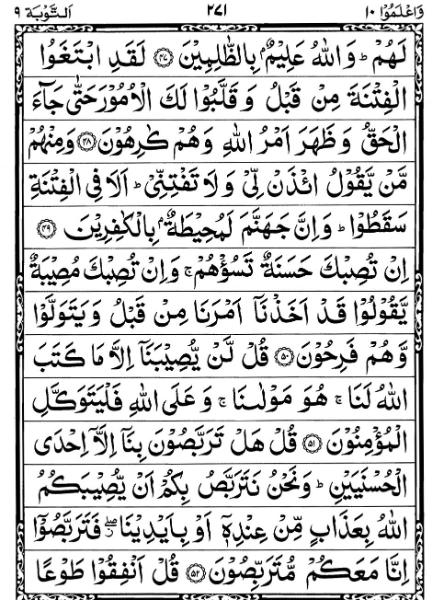 وَاعْلَمُوْۤا ١٠ ٢٧١ اَلتَّوْبَة ٩
لَهُمْ ؕ وَاللّٰهُ عَلِيْمٌۢ بِالظّٰلِمِيْنَ ﴿٤٧﴾ لَقَدِ ابْتَغَوُا
الْفِتْنَةَ مِنْ قَبْلُ وَ قَلَّبُوْا لَكَ الْاُمُوْرَ حَتّٰى جَآءَ
الْحَقُّ وَ ظَهَرَ اَمْرُ اللّٰهِ وَهُمْ كٰرِهُوْنَ ﴿٤٨﴾ وَمِنْهُمْ
مَّنْ يَّقُوْلُ ائْذَنْ لِّيْ وَ لَا تَفْتِنِّيْ ؕ اَلَا فِى الْفِتْنَةِ
سَقَطُوْا ؕ وَاِنَّ جَهَنَّمَ لَمُحِيْطَةٌۢ بِالْكٰفِرِيْنَ ﴿٤٩﴾
اِنْ تُصِبْكَ حَسَنَةٌ تَسُؤْهُمْ ۚ وَاِنْ تُصِبْكَ مُصِيْبَةٌ
يَّقُوْلُوْا قَدْ اَخَذْنَاۤ اَمْرَنَا مِنْ قَبْلُ وَيَتَوَلَّوْا
وَّهُمْ فَرِحُوْنَ ﴿٥٠﴾ قُلْ لَّنْ يُّصِيْبَنَاۤ اِلَّا مَا كَتَبَ
اللّٰهُ لَنَا ۚ هُوَ مَوْلٰىنَا ۚ وَ عَلَى اللّٰهِ فَلْيَتَوَكَّلِ
الْمُؤْمِنُوْنَ ﴿٥١﴾ قُلْ هَلْ تَرَبَّصُوْنَ بِنَاۤ اِلَّاۤ اِحْدَى
الْحُسْنَيَيْنِ ؕ وَنَحْنُ نَتَرَبَّصُ بِكُمْ اَنْ يُّصِيْبَكُمُ
اللّٰهُ بِعَذَابٍ مِّنْ عِنْدِهٖۤ اَوْ بِاَيْدِيْنَا ۖ فَتَرَبَّصُوْۤا
اِنَّا مَعَكُمْ مُّتَرَبِّصُوْنَ ﴿٥٢﴾ قُلْ اَنْفِقُوْا طَوْعًا